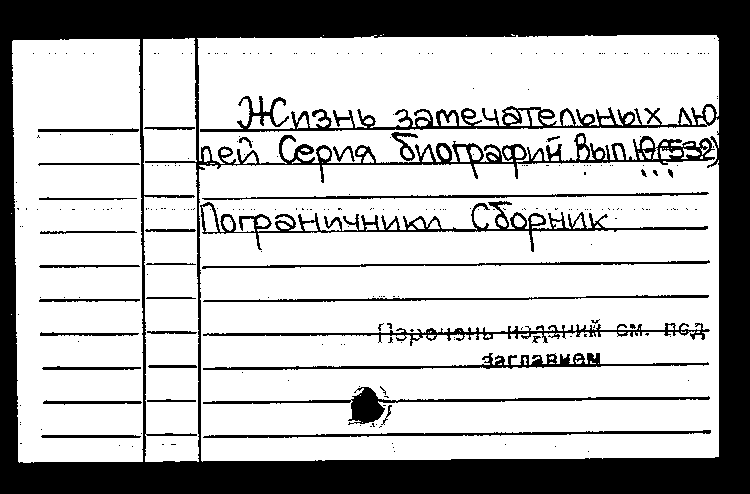 Жизнь замечательных лю
дей Серия биографий. Вып. 10(532)
Пограничники. Сборник.
Перечень изданий см. под
заглавием